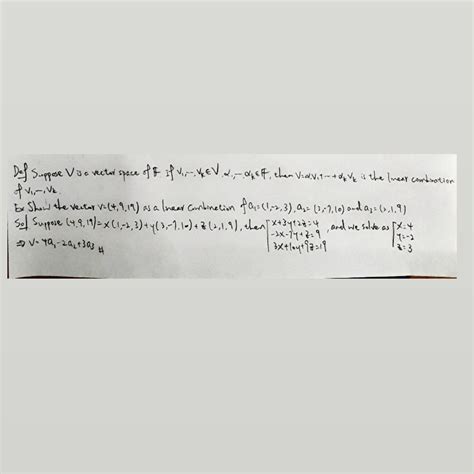 Def Suppose V is a vector space of F. If v₁,⋯,vₖ∈V, α₁,⋯,αₖ∈F, then v=α₁v₁+⋯+αₖvₖ is the linear combination
of v₁,⋯,vₖ.
Ex Show the vector v=(4,9,19) as a linear combination of a₁=(1,-2,3), a₂=(3,-7,10) and a₃=(2,1,9)
Sol Suppose (4,9,19)=x(1,-2,3)+y(3,-7,10)+z(2,1,9), then { x+3y+2z=4, and we solve as { x=4
-2x-7y+z=9 y=-2
3x+10y+9z=19 z=3
⇒ v=4a₁-2a₂+3a₃ #